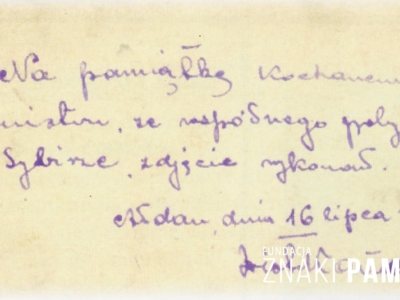 Na pamiątkę Kochanemu
ze wspólnego
Sybirze, zdjęcie wykonał.
Ałdan, dnia 16 lipca
FUNDACJA
ZNAKI PAM